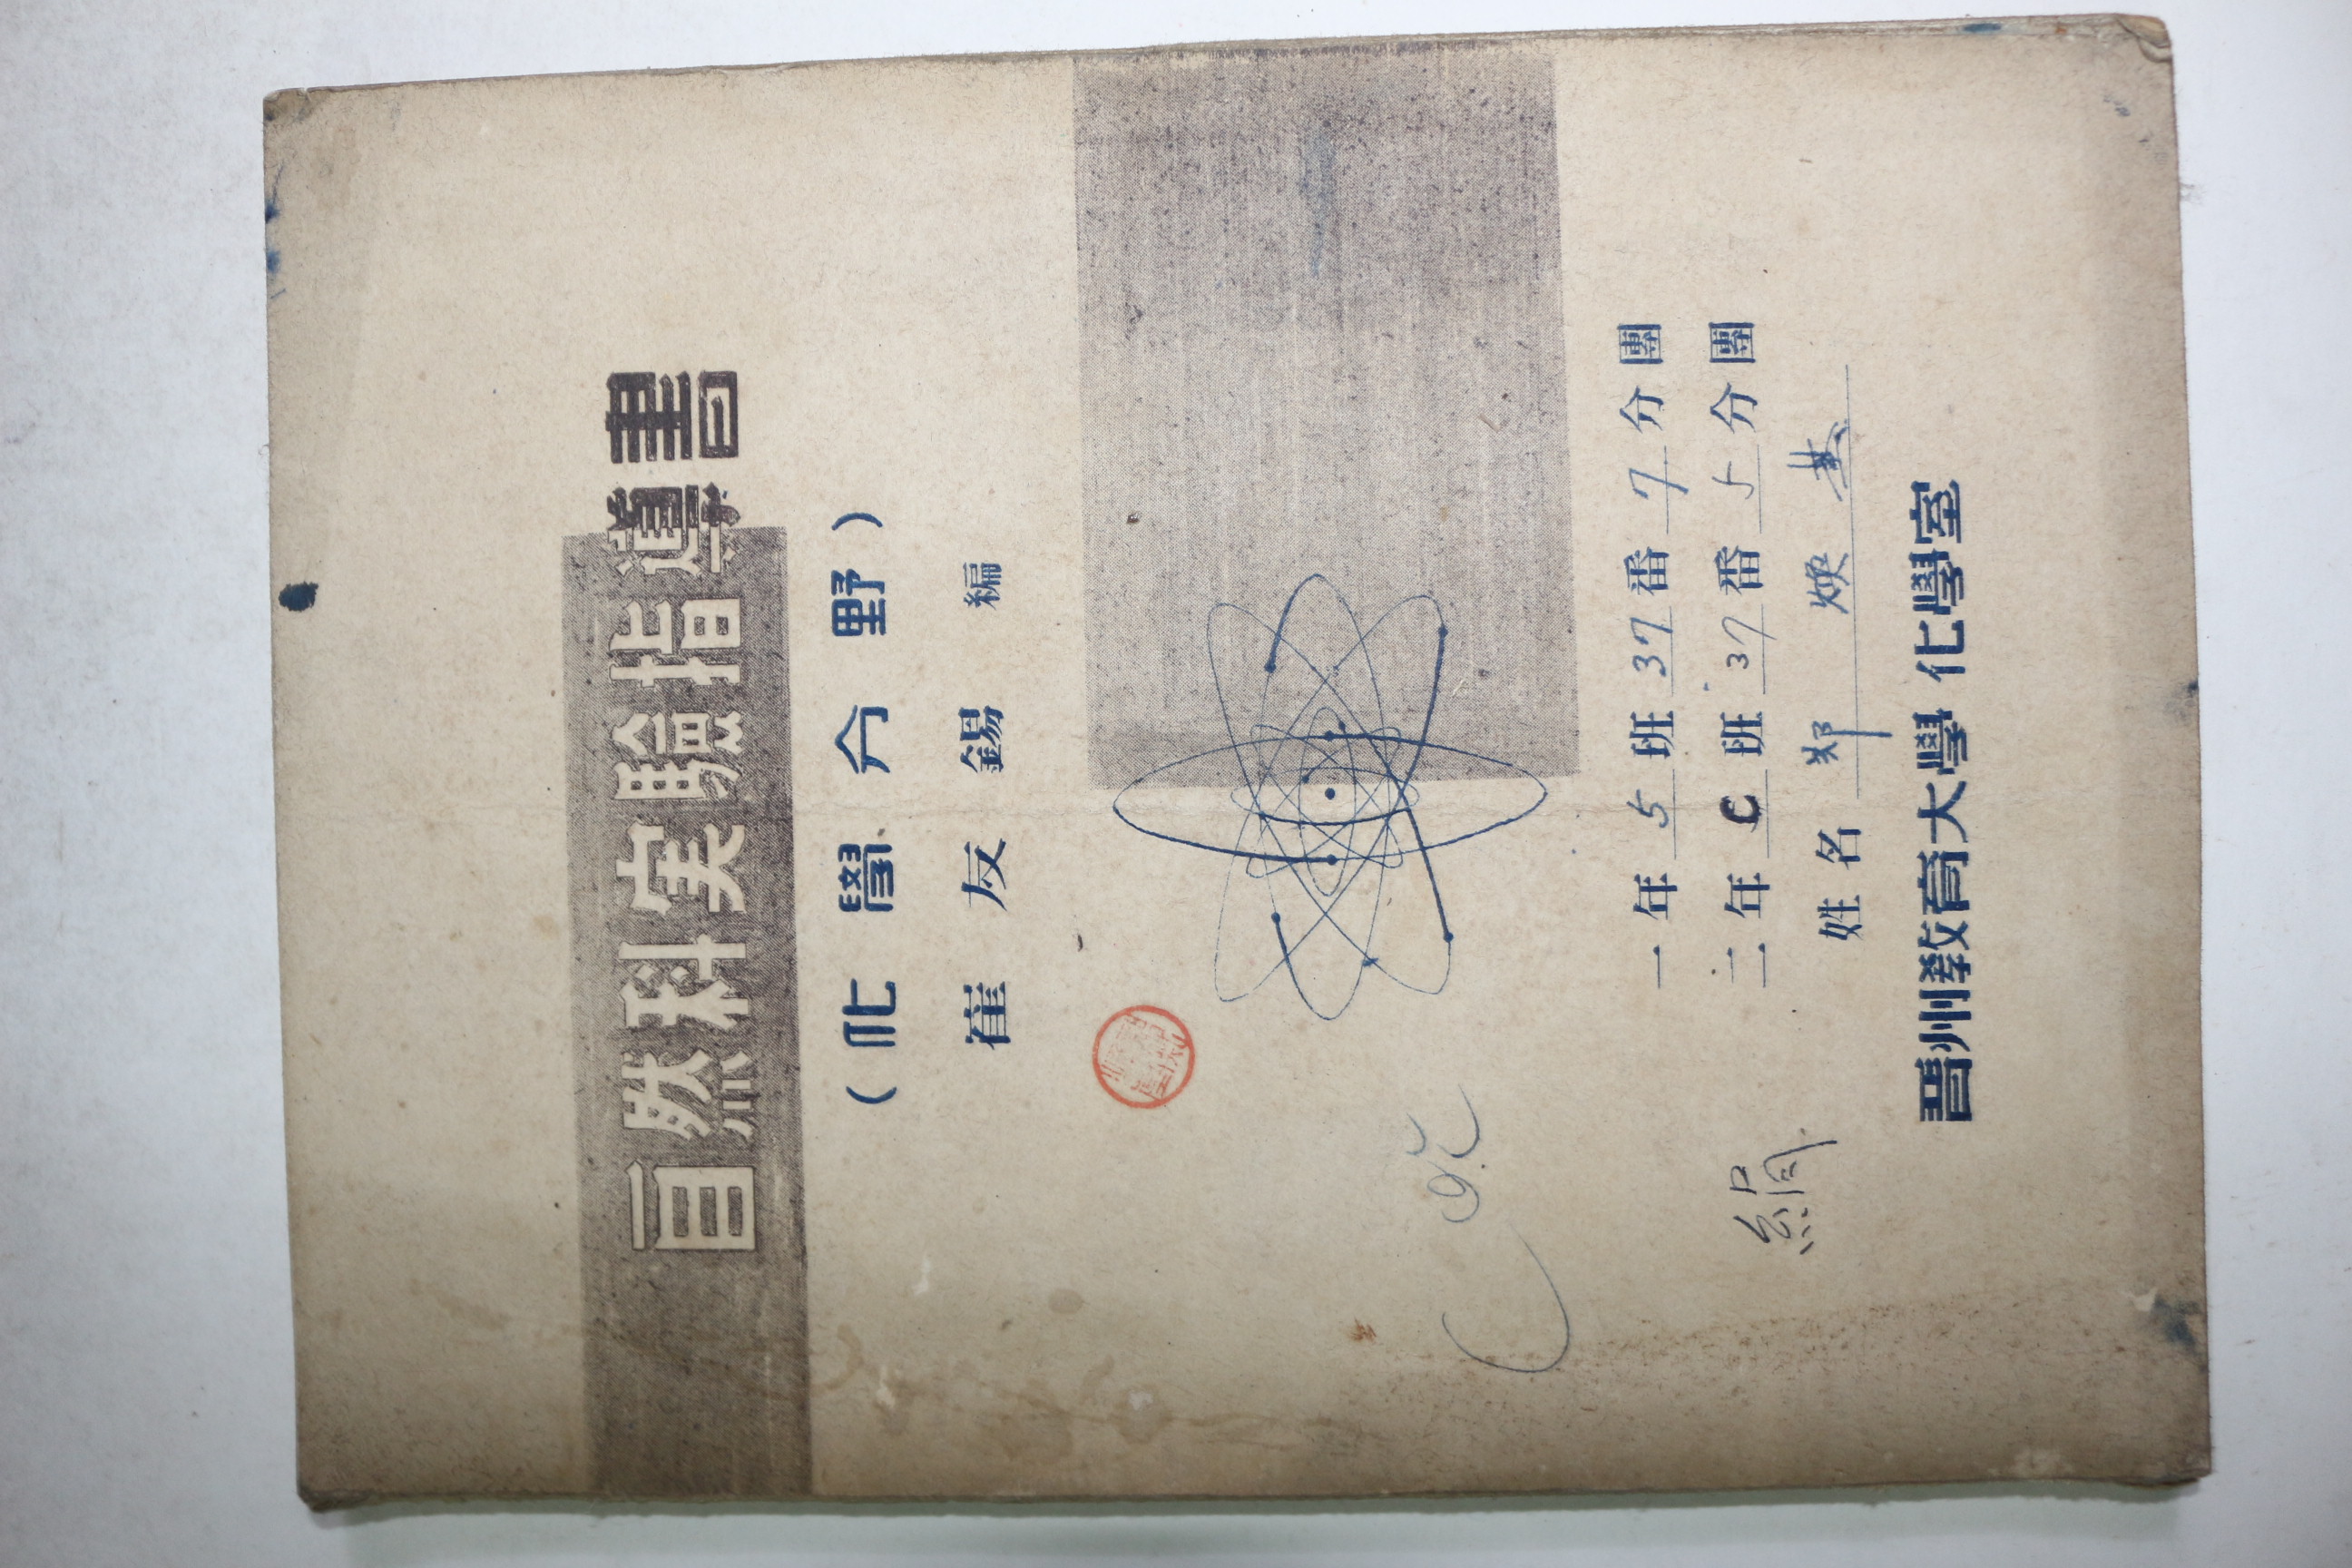 自然科実驗指導書
(化學分野)
崔友錫 編
一年 5 班 37 番 7 分團
二年 C 班 37 番 5 分團
姓名 鄭煥
絹
晋州敎育大學 化學室